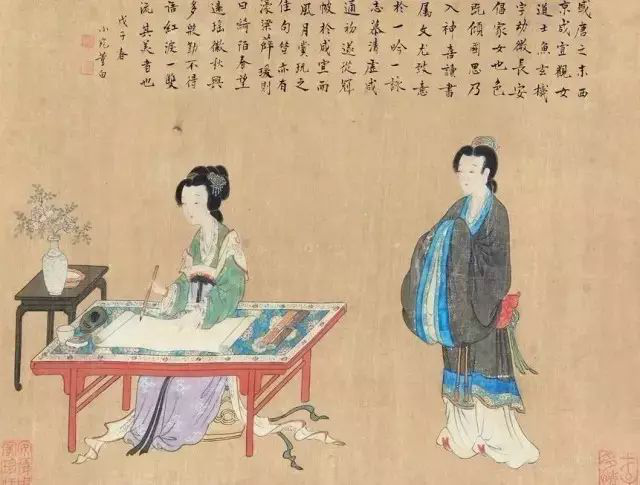 唐之末西
京咸宜觀女
道士魚玄機
字幼微長安
倡家女也色
既傾國思乃
入神喜讀書
屬文尤致意
於一吟一詠
志慕清虛咸
通初遂從冠
帔於咸宜而
風月賞玩之
佳句 亦有
濠梁薛瑗則
曰綺陌春望
遠瑤徽秋興
多殷勤不得
語紅淚一雙
流其美者也
戊子春
小宛董白